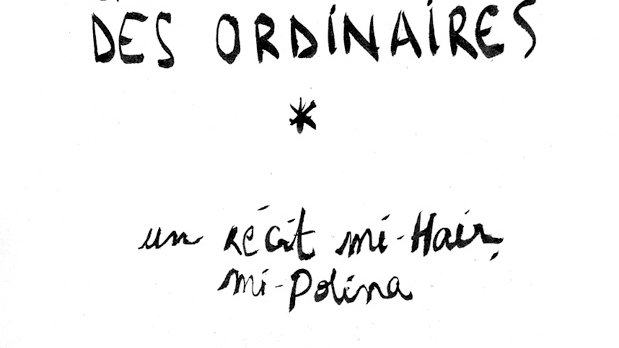 DES ORDINAIRES
*
un récit mi-Hair,
mi-Polina